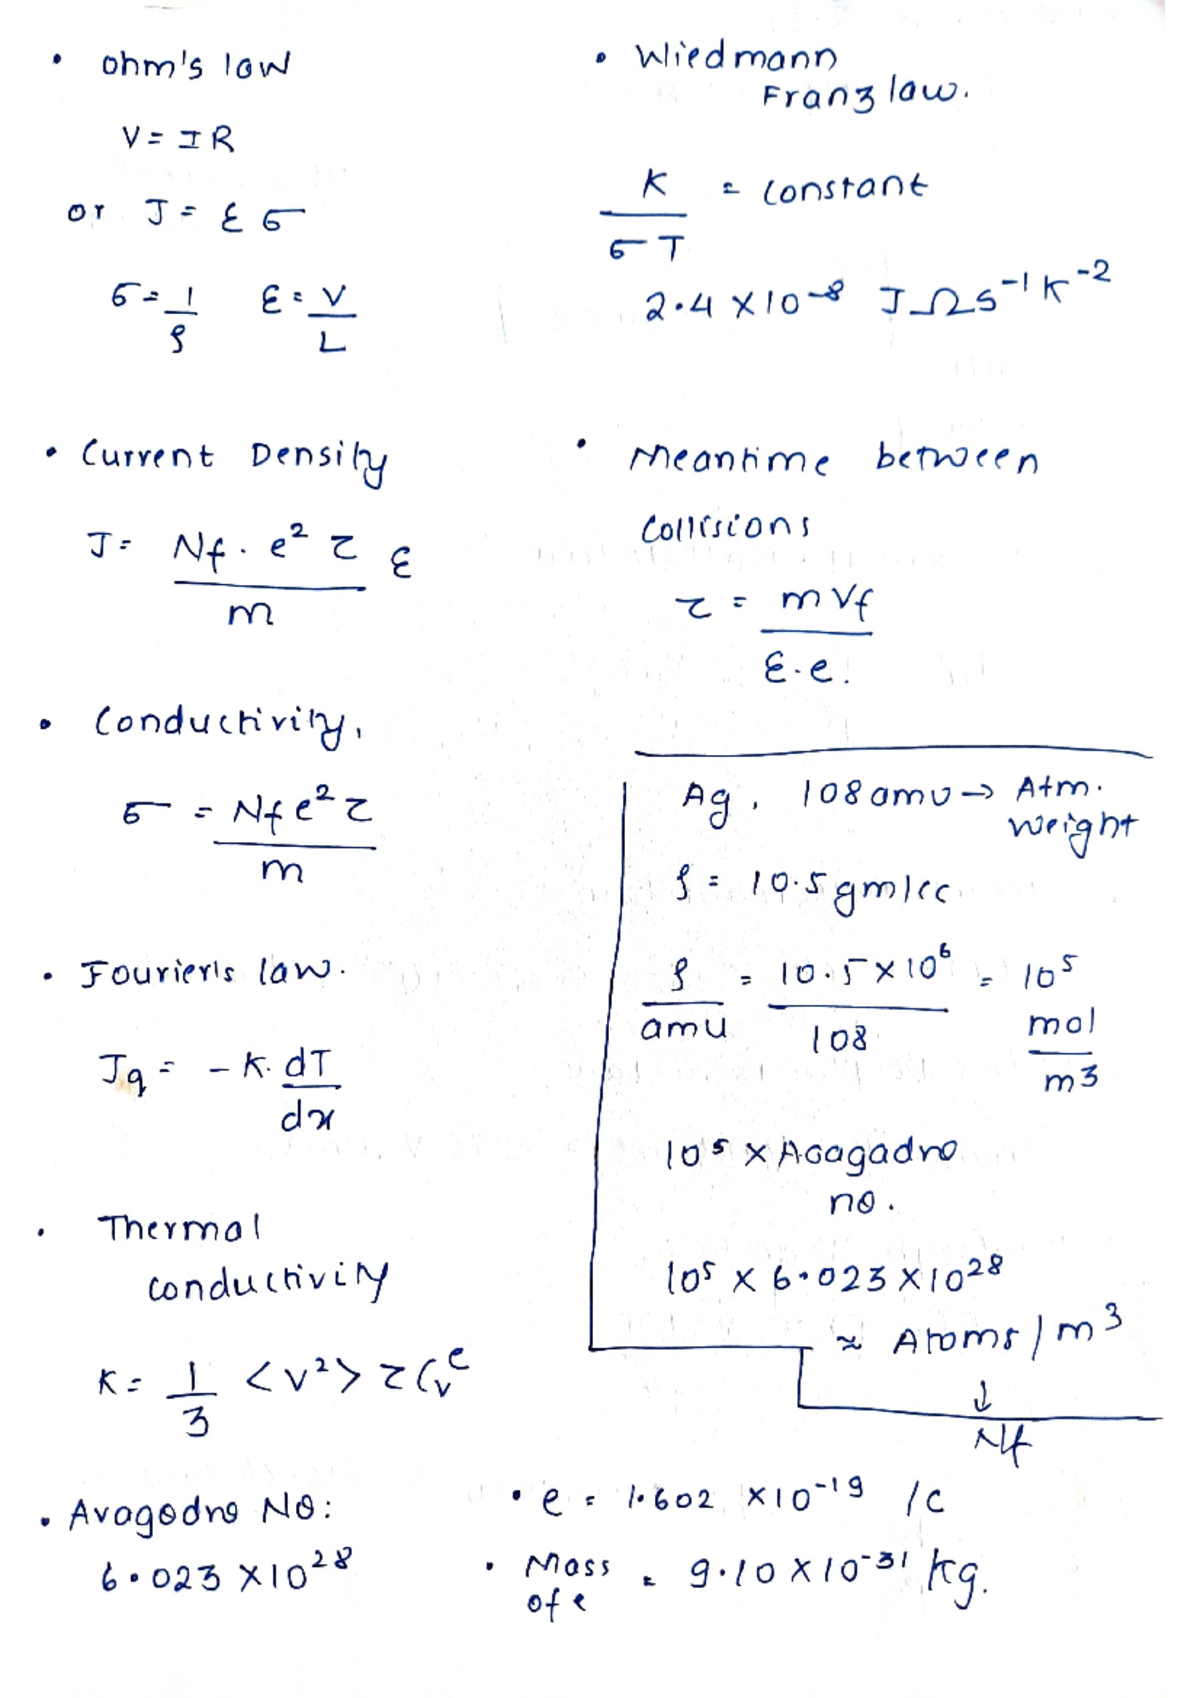 • ohm's law
V = IR
or J = ε σ
σ = 1/ρ   ε = V/L
• Current Density
J = Nf · e² τ / m ε
• Conductivity,
σ = Nf e² τ / m
• Fourier's law.
Jq = - K · dT/dx
• Thermal
conductivity
K = 1/3 <v²> τ Cvᵉ
• Avogodro NO:
6.023 × 10²⁸
• Wiedmann
Franz law.
K/σT = constant
2.4 × 10⁻⁸ JΩS⁻¹K⁻²
• Meantime between
Collisions
τ = mVf / ε·e.
Ag, 108 amu → Atm.
weight
ρ = 10.5 gm/cc
ρ/amu = 10.5 × 10⁶ / 108 = 10⁵ mol/m3
10⁵ × Avagadro
no.
10⁵ × 6.023 × 10²⁸
≈ Atoms / m³
↓
Nf
• e = 1.602 × 10⁻¹⁹ /C
• Mass of e = 9.10 × 10⁻³¹ kg.